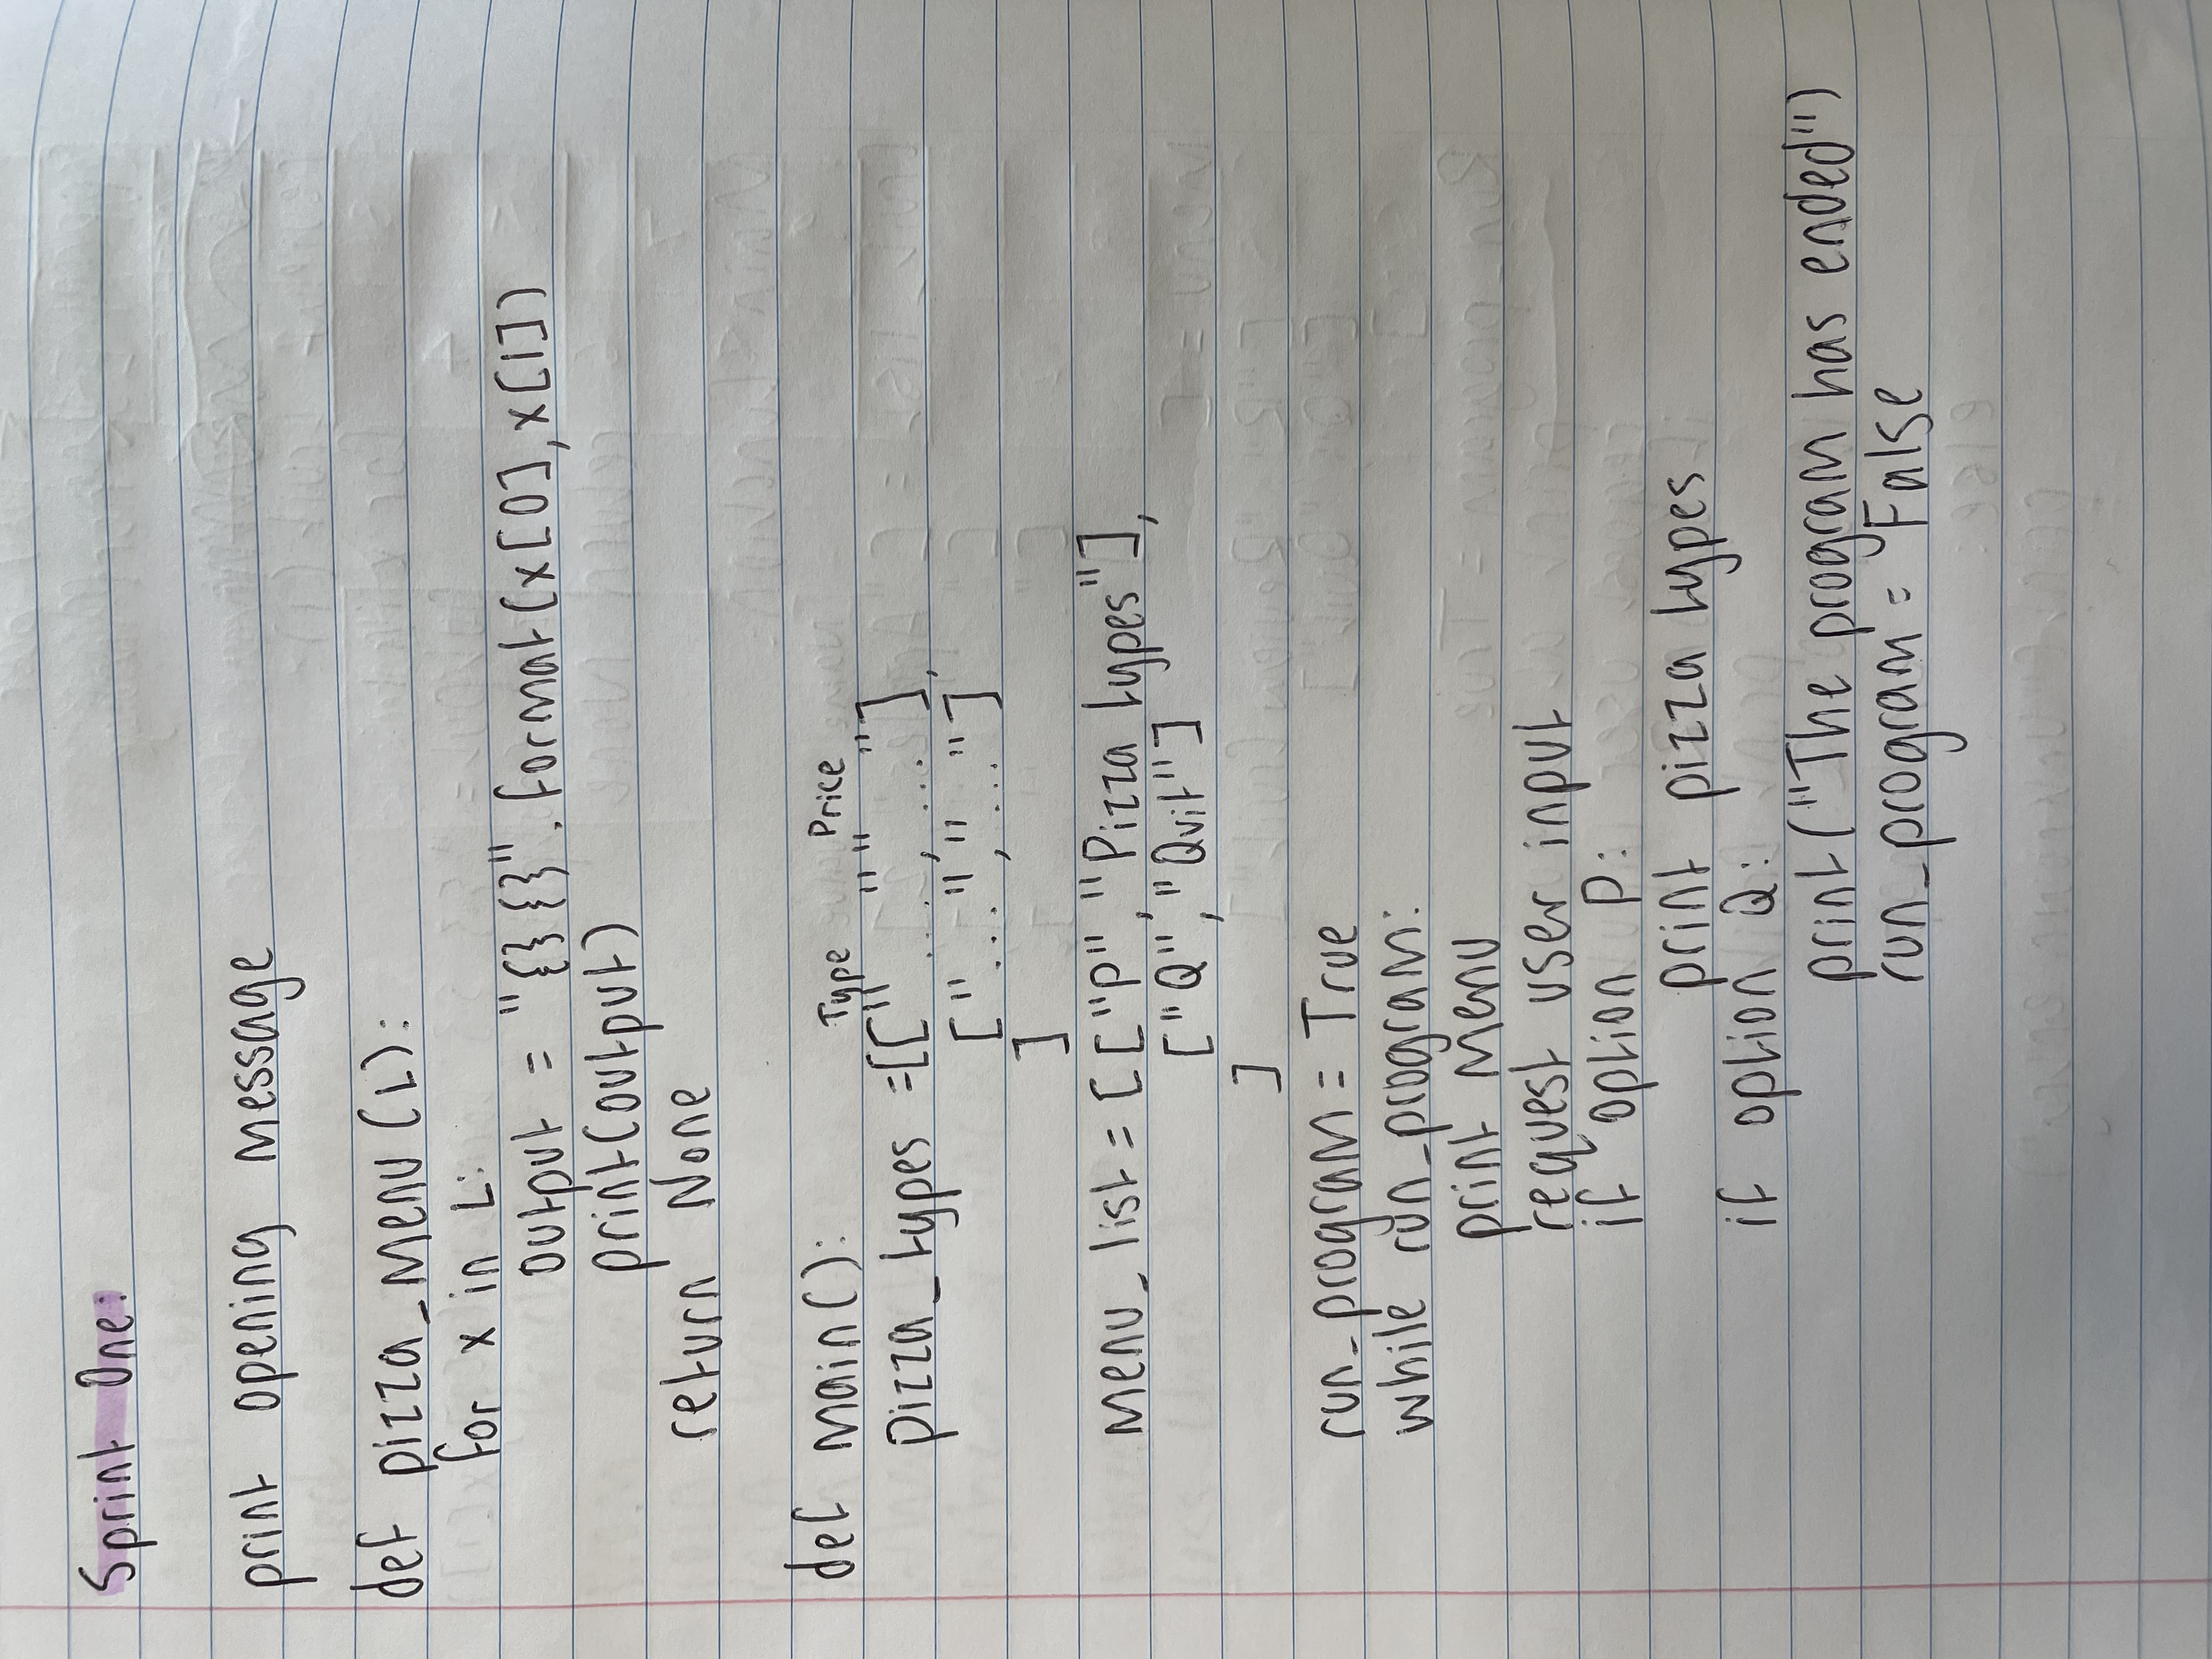 Sprint One:
print opening message
def pizza_menu(L):
for x in L:
output = "{} {}".format(x[0],x[1])
print(output)
return None
def main():
Type Price
pizza_types =[["....","..."],
["...","..."]
]
menu_list = [["P","Pizza types"],
["Q","Quit"]
]
run_program = True
while run_program:
print menu
request user input
if option P:
print pizza types
if option Q:
print("The program has ended")
run_program = False